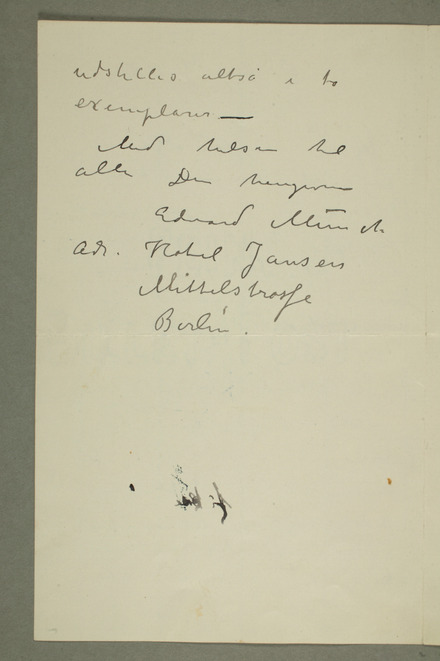 udstilles altså i to
exemplarer —
Med hilsen til
alle Den hengivne
Edvard Munch
Adr. Hotel Jansen
Mittelstrasse
Berlin.